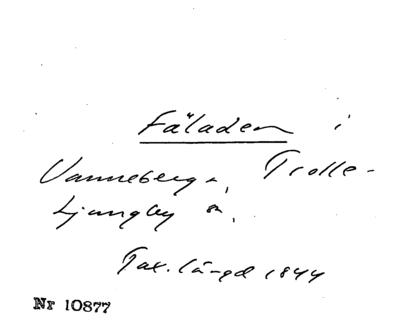 Fäladen i
Vanneberga, Trolle-
Ljungby sn.
Tax. längd 1844
Nr 10877